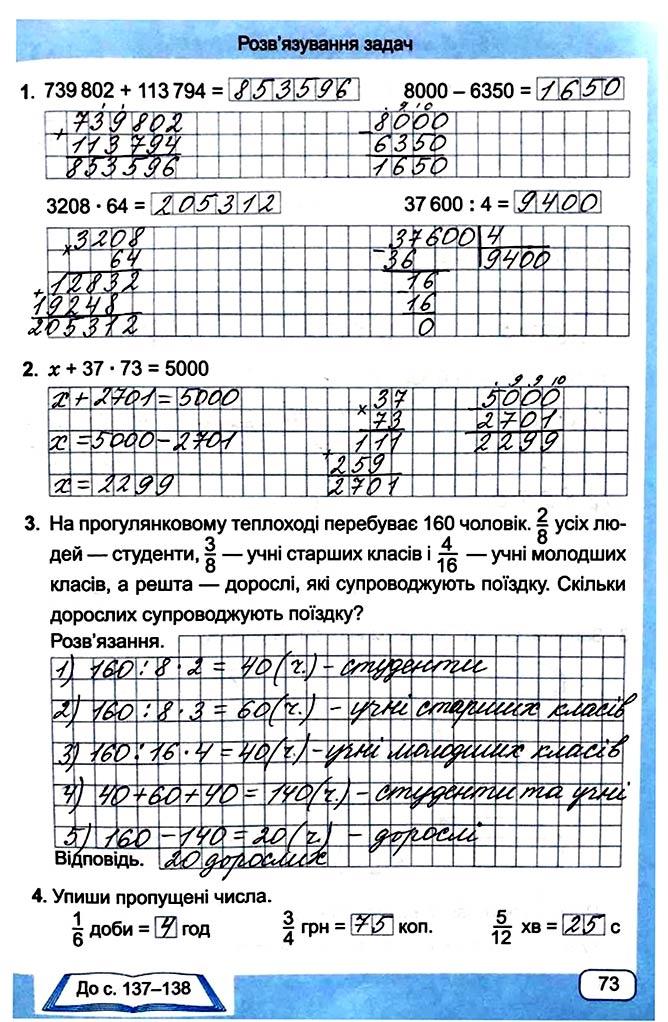 Розв'язування задач
1. 739 802 + 113 794 = 853596 8000 – 6350 = 1650
739802 8000
+ 113794 – 6350
853596 1650
3208 · 64 = 205312 37 600 : 4 = 9400
3208 37600 4
× 64 – 36 9400
12832 16
+ 19248 16
205312 0
2. x + 37 · 73 = 5000
x + 2701 = 5000 37 5000
× 73 – 2701
x = 5000 – 2701 111 2299
+ 259
x = 2299 2701
3. На прогулянковому теплоході перебуває 160 чоловік. 2/8 усіх лю-
дей — студенти, 3/8 — учні старших класів і 4/16 — учні молодших
класів, а решта — дорослі, які супроводжують поїздку. Скільки
дорослих супроводжують поїздку?
Розв'язання.
1) 160 : 8 · 2 = 40 (ч.) – студенти
2) 160 : 8 · 3 = 60 (ч.) – учні старших класів
3) 160 : 16 · 4 = 40 (ч.) – учні молодших класів
4) 40 + 60 + 40 = 140 (ч.) – студенти та учні
5) 160 – 140 = 20 (ч.) – дорослі
Відповідь. 20 дорослих
4. Упиши пропущені числа.
1/6 доби = 4 год 3/4 грн = 75 коп. 5/12 хв = 25 с
До с. 137–138
73